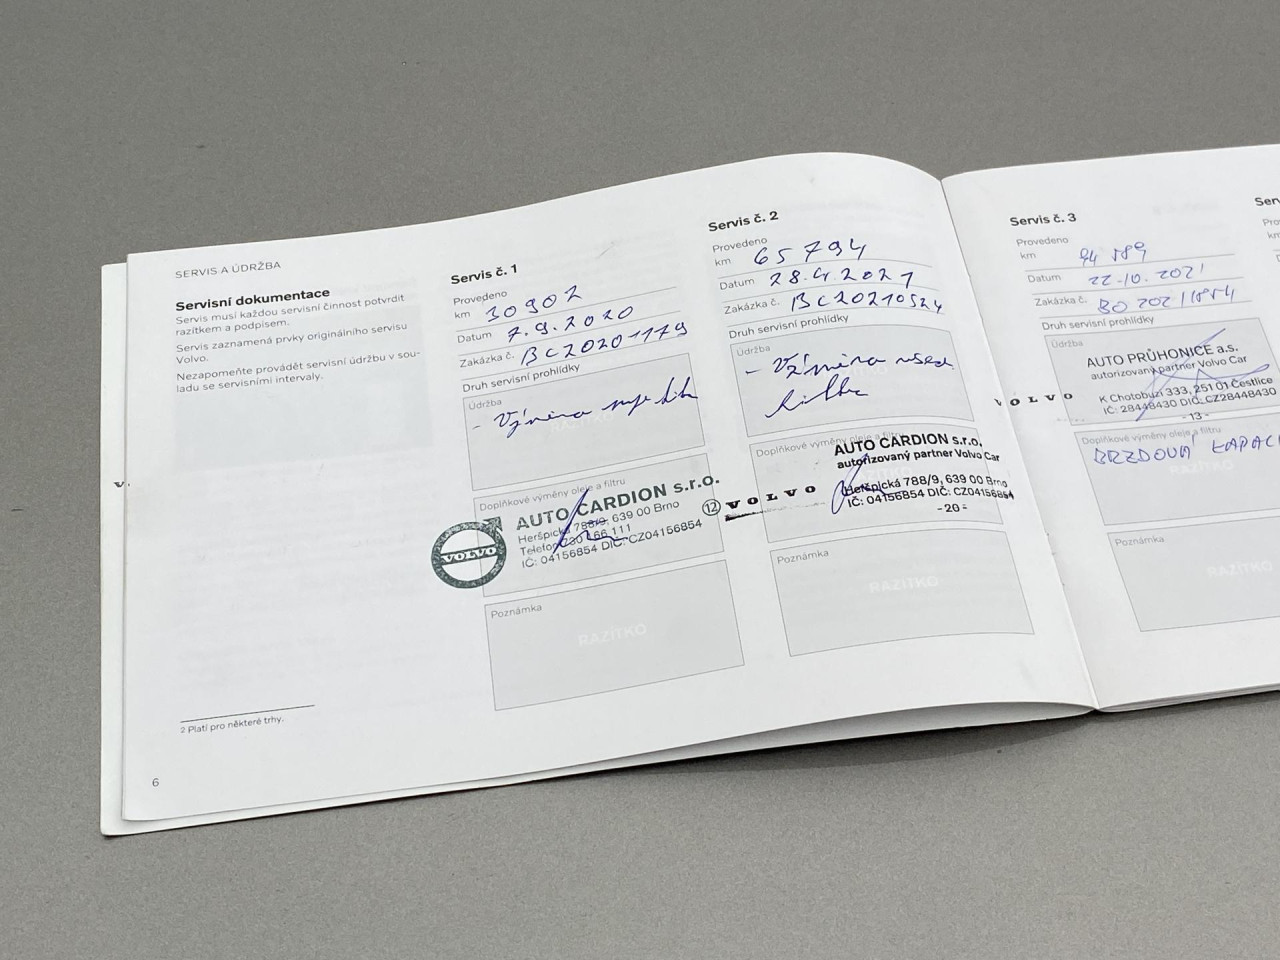 SERVIS A ÚDRŽBA
Servisní dokumentace
Servis musí každou servisní činnost potvrdit
razítkem a podpisem.
Servis zaznamená prvky originálního servisu
Volvo.
Nezapomeňte provádět servisní údržbu v sou-
ladu se servisními intervaly.
2 Platí pro některé trhy.
6
Servis č. 1
Provedeno
km 30902
Datum 7.9.2020
Zakázka č. BC20201179
Druh servisní prohlídky
Údržba
- Výměna
Doplňkové výměny oleje a filtru
VOLVO
AUTO CARDION s.r.o.
Heršpická 788/9, 639 00 Brno
Telefon 530 166 111
IČ: 04156854 DIČ: CZ04156854
12
Poznámka
RAZÍTKO
Servis č. 2
Provedeno
km 65794
Datum 28.4.2021
Zakázka č. BC20210524
Druh servisní prohlídky
Údržba
- Výměna
Doplňkové výměny oleje a filtru
VOLVO
AUTO CARDION s.r.o.
autorizovaný partner Volvo Car
Heršpická 788/9, 639 00 Brno
IČ: 04156854 DIČ: CZ04156854
- 20 -
Poznámka
RAZÍTKO
Servis č. 3
Provedeno
km
Datum 22.10.2021
Zakázka č.
Druh servisní prohlídky
Údržba
VOLVO
AUTO PRŮHONICE a.s.
autorizovaný partner Volvo Car
K Chotobuzi 333, 251 01 Čestlice
IČ: 28448430 DIČ: CZ28448430
- 13 -
Doplňkové výměny oleje a filtru
BRZDOVÁ KAPAL
Poznámka
RAZÍTKO